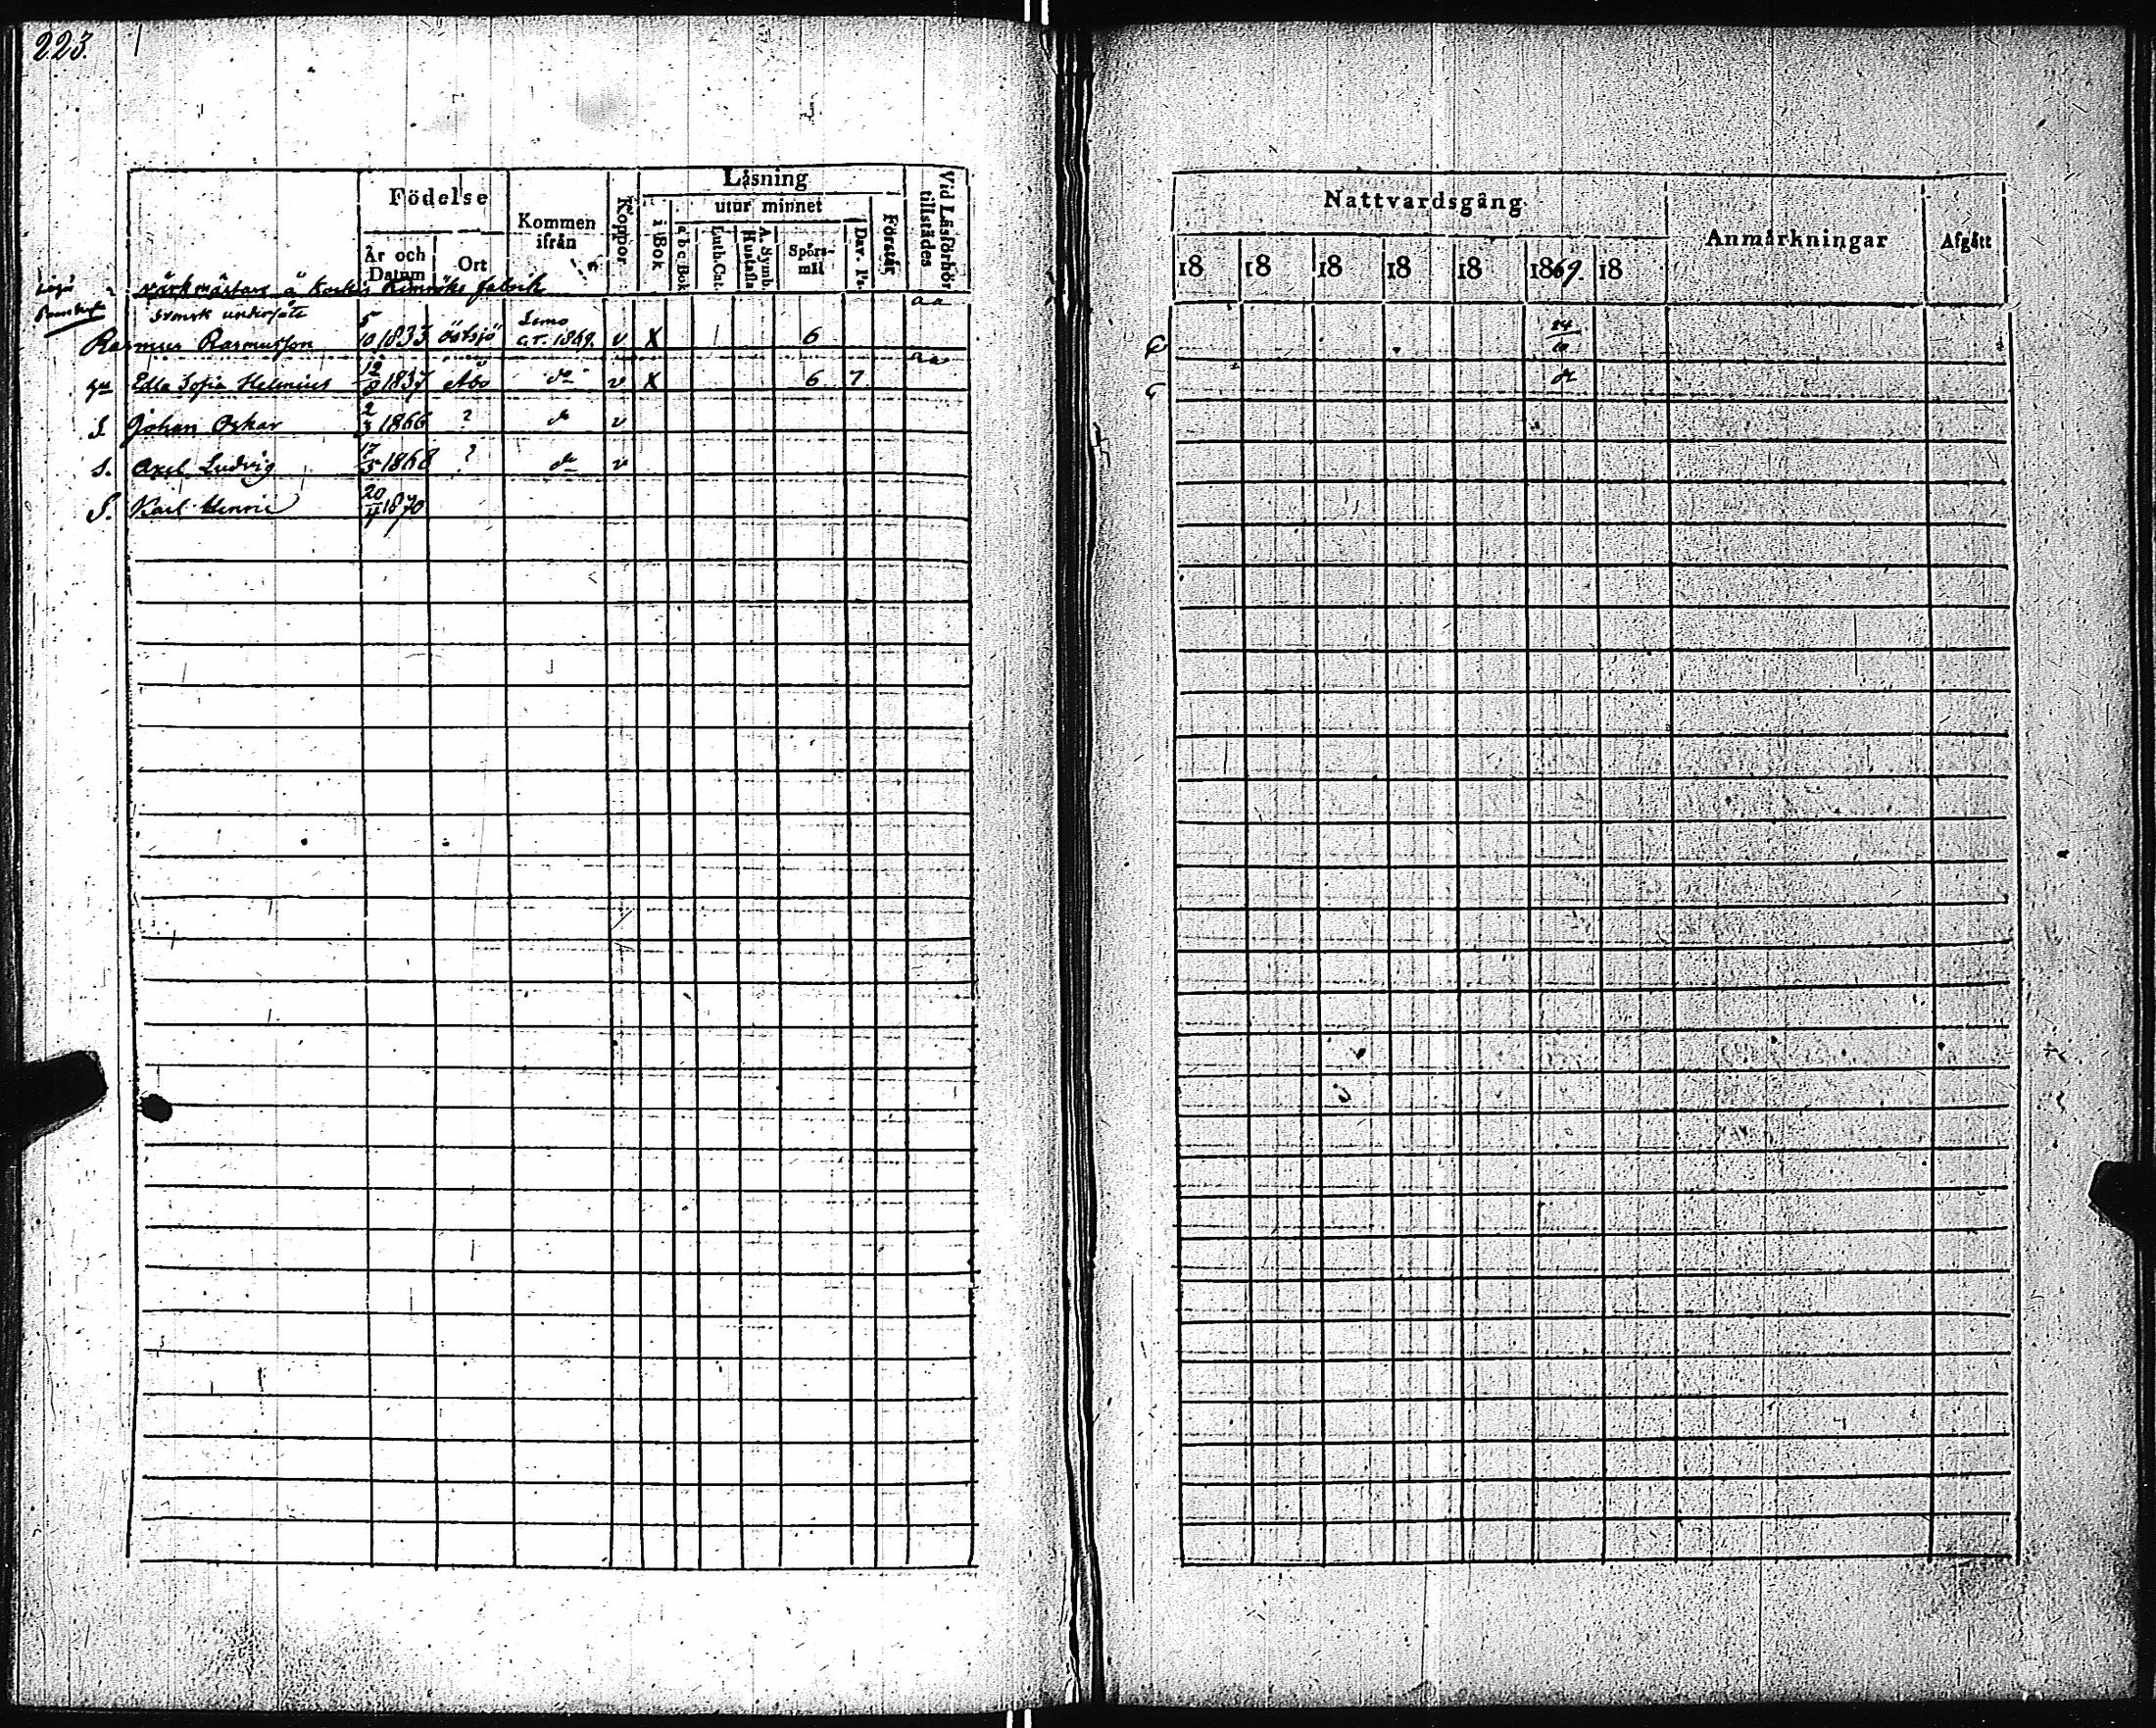 223.
Födelse
Kommen ifrån
Koppor
Läsning
Vid Läsförhör tillstädes
År och Datum
Ort
i Bok
utur minnet
Förstår
a b c Bok
Luth. Cat.
A. Symb. Hustafla
Spörsmål
Dav. Ps.
värkmästare å Kimröks fabrik
aa
svensk undersåte
Rasmus Rasmusson 5/10 1833 Lemo G.T. 1869. v X 6
aa
Edla Sofia Helenius 1837 Åbo do v X 6 7
S. Johan Oskar 2/3 1866 ? do v
s. Axel Ludvig 17/5 1868 ? do v
S. Karl Henric 20/4 1870
Nattvardsgång
Anmärkningar
Afgått
18 18 18 18 18 1869. 18